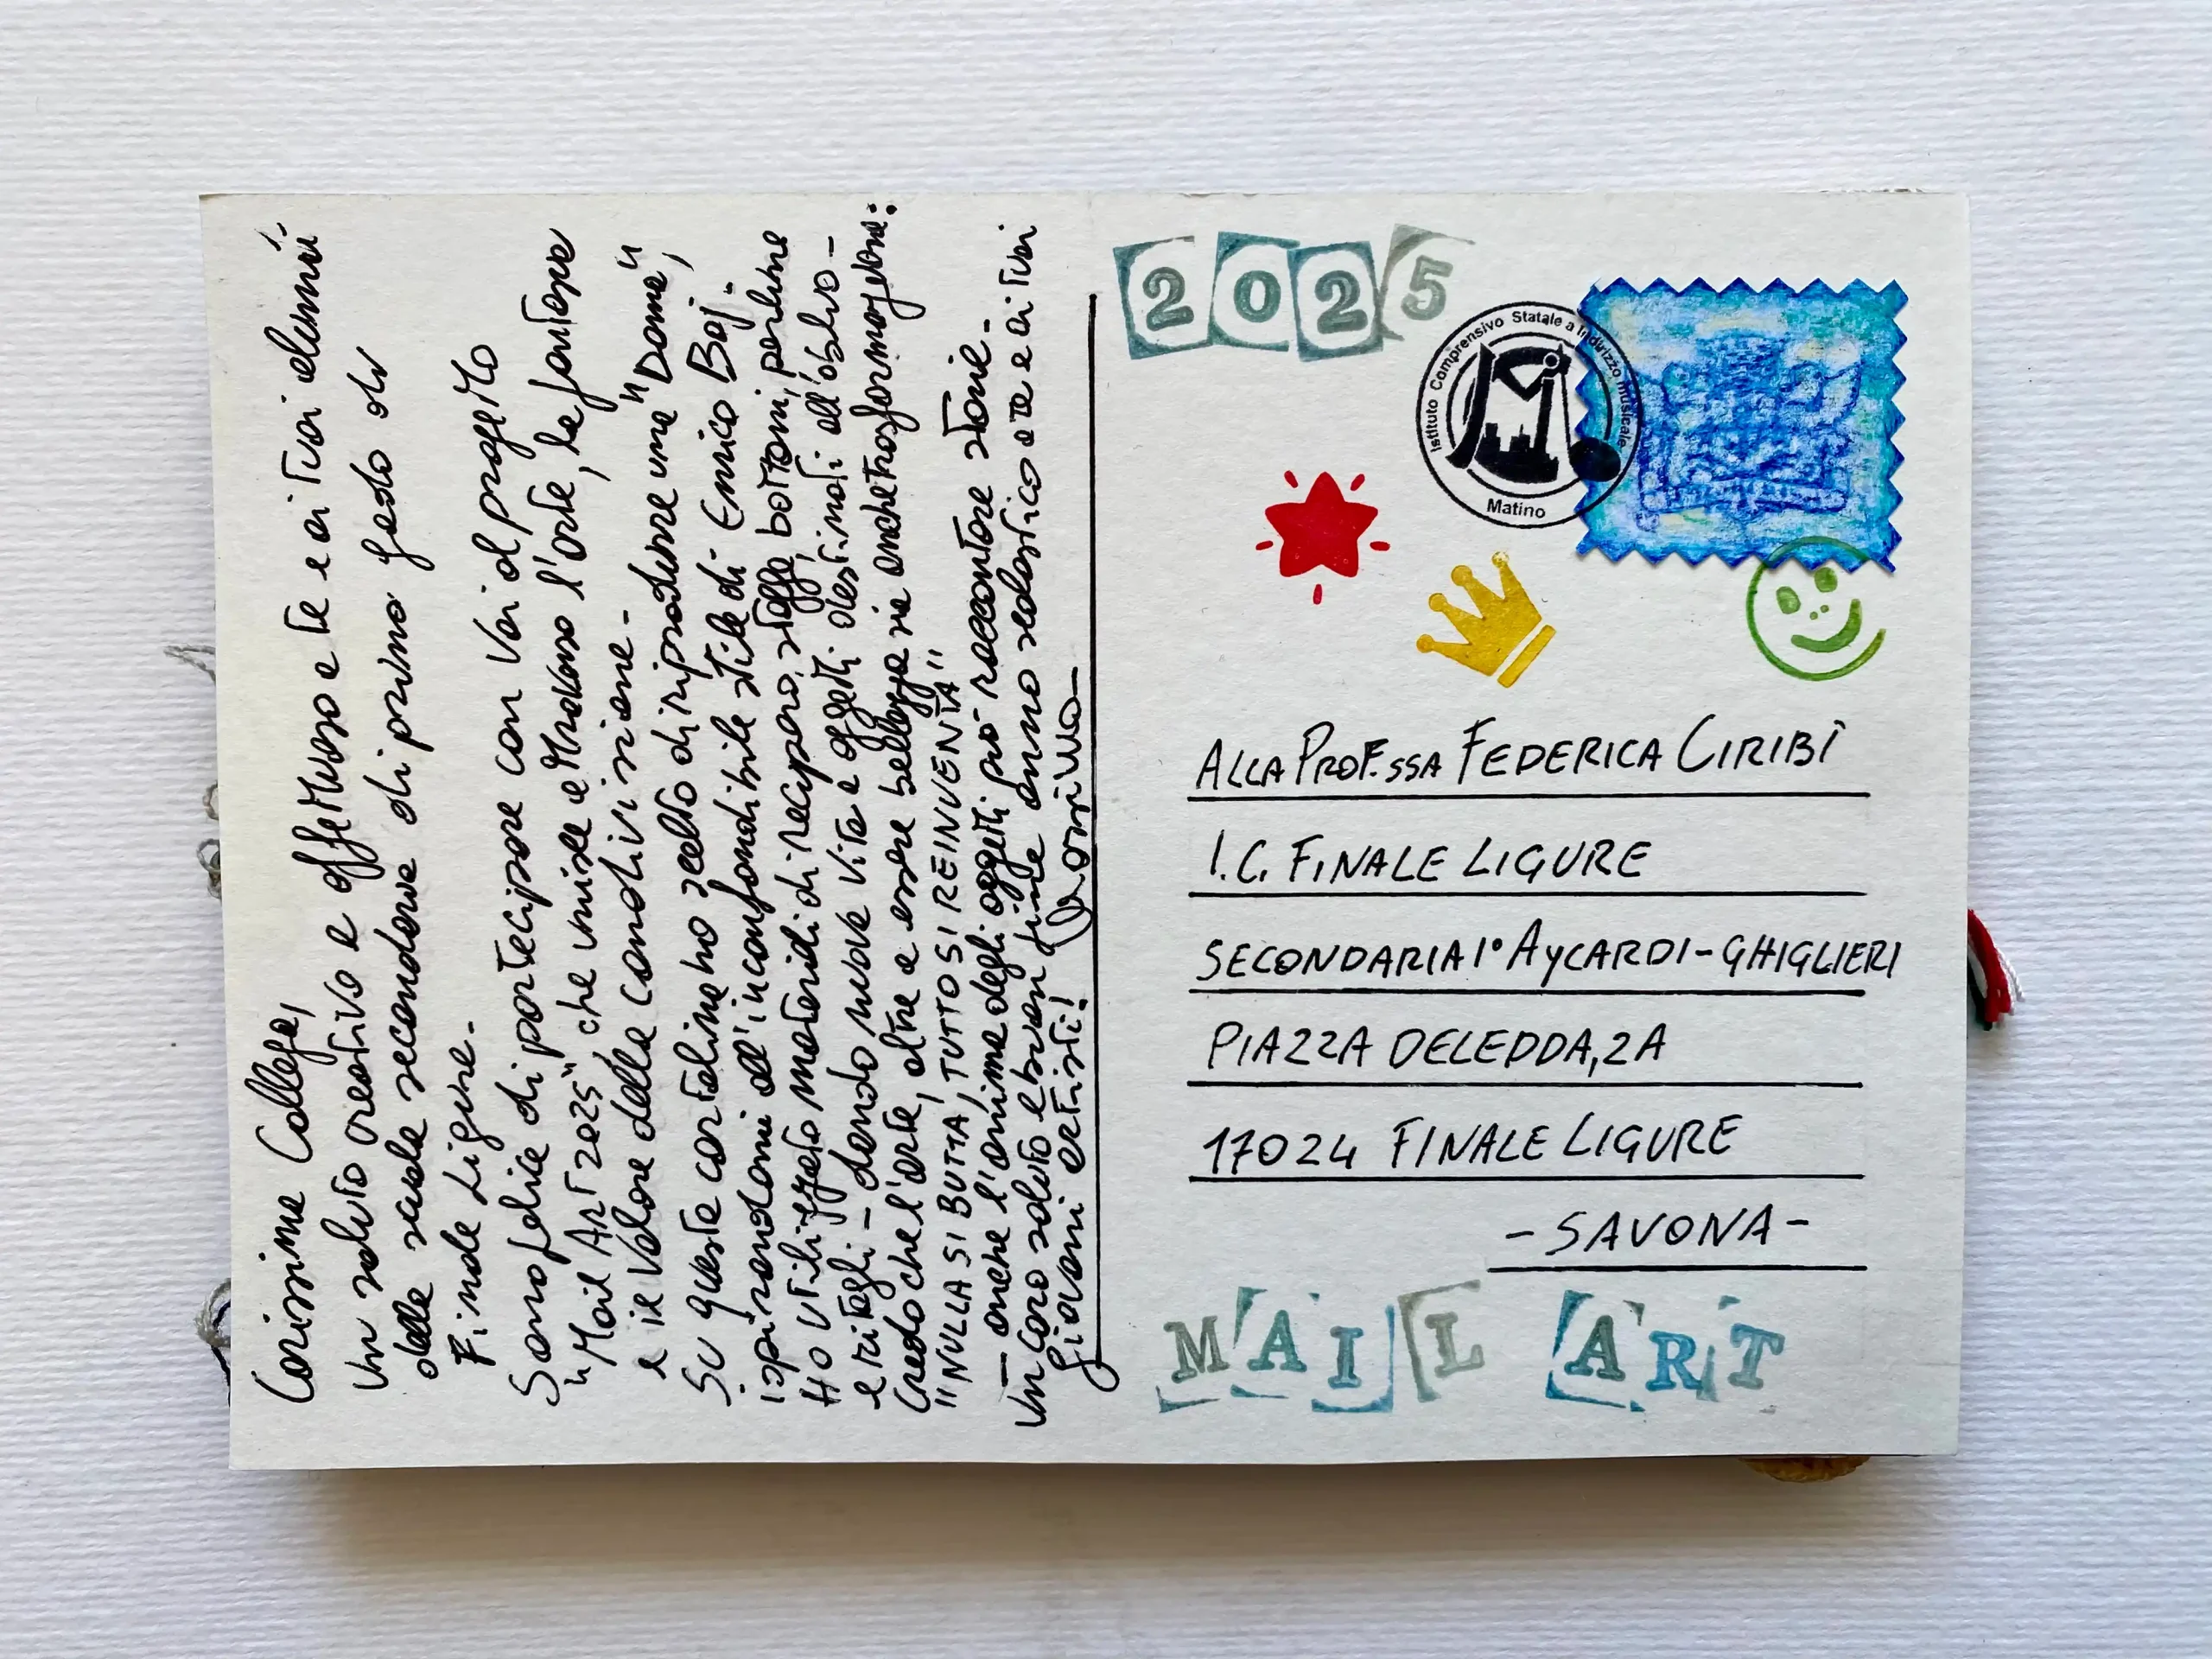 Carissima Collega,
Un saluto creativo e affettuoso a te e ai tuoi alunni
della scuola secondaria di primo grado di
Finale Ligure.
Sono felice di partecipare con voi al progetto
"Mail Art 2025", che unisce attraverso l'arte, la fantasia
e il valore della condivisione.
Su questa cartolina ho scelto di riprodurre una "Dama",
ispirandomi all'inconfondibile stile di Enrico Baj.
Ho utilizzato materiali di recupero, stoffa, bottoni, perline
e ritagli - dando nuova vita a oggetti destinati all'oblio-
Credo che l'arte, oltre a essere bellezza sia anche trasformazione:
"NULLA SI BUTTA, TUTTO SI REINVENTA"
- anche l'anima degli oggetti può raccontare storie-
Un caro saluto e buon fine anno scolastico a te e ai tuoi
giovani artisti!
2025
Istituto Comprensivo Statale a Indirizzo musicale
Matino
ALLA PROF.SSA FEDERICA CIRIBÌ
I.C. FINALE LIGURE
SECONDARIA 1° AYCARDI-GHIGLIERI
PIAZZA DELEDDA, 2A
17024 FINALE LIGURE
- SAVONA -
MAIL ART